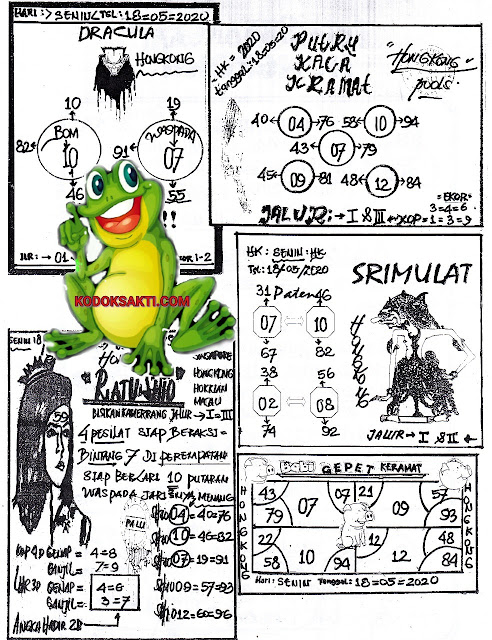 HARI: > SENIN TEL: 18=05=2020
DRACULA
HONGKONG
10
19
82
BOM
10
91
WASPADA
07
46
55
!!
: → 01
1-2
KODOKSAKTI.COM
= HK = 2020
tanggal: 18=05=20
PUTRY
KACA
KRAMAT
"HONGKONG"
POOLS
40 04 76 58 10 94
43 07 79
45 09 81 48 12 84
= EKOR =
3=4=6
JALUR: → I & III ← KOP = 1=3=9
HK: SENIN: HK
TGL: 18/05/2020
SRIMULAT
31 Paten 46
07 10
67 82
38 56
02 08
74 92
JALUR → I & II ←
SENIN 18
SINGAPORE
HONGKONG
HOKKIAN
MACAU
"RATU
59
BISIKAN JALUR → I = III
4 PESILAT SIAP BERAKSI =
BINTANG 7 DI PEREMPATAN
SIAP BERLARI 10 PUTARAN
WASPADA JARI MENANG
PALU
04 = 40 = 76
10 = 46 = 82
07 = 19 = 91
009 = 57 = 93
012 = 60 = 96
KOP 4D GENAP = 4=8
GANJIL = 7=9
3D GENAP = 4=6
GANJIL = 3=7
ANGKA HADIR 2D
BABI GEPET KERAMAT
HONGKONG
HONGKONG
43 07 07 21 09 57
79 93
22 48
58 10 94 12 12 84
Hari: SENIN Tanggal: 18=05=2020